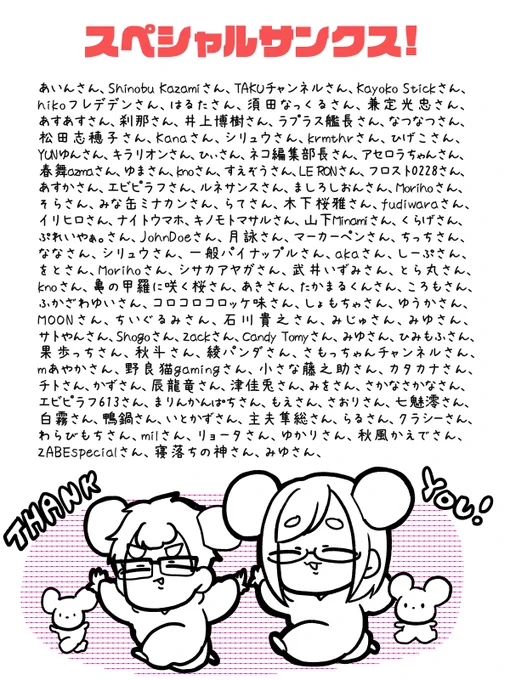 スペシャルサンクス!
あいんさん、Shinobu Kazamiさん、TAKUチャンネルさん、Kayoko Stickさん、
hikoフレデデンさん、はるたさん、須田なっくるさん、兼定光忠さん、
あすあすさん、刹那さん、井上博樹さん、ラプラス艦長さん、なつなつさん、
松田志穂子さん、Kanaさん、シリュウさん、krmthrさん、ひげこさん、
YUNゆんさん、キラリオンさん、ひぃさん、ネコ編集部長さん、アセロラちゃんさん、
春舞azmaさん、ゆまさん、knoさん、すえぞうさん、LE RONさん、フロスト0228さん、
あすかさん、エビピラフさん、ルネサンスさん、ましろしおんさん、Morihoさん、
そらさん、みな缶ミナカンさん、らてさん、木下桜雅さん、fudiwaraさん、
イリヒロさん、ナイトウマホ、キノモトマサルさん、山下Minamiさん、くらげさん、
ぷれいやぁ。さん、JohnDoeさん、月詠さん、マーカーペンさん、ちっちさん、
ななさん、シリュウさん、一般パイナップルさん、akaさん、しーぷさん、
をとさん、Morihoさん、シサカアヤガさん、武井いずみさん、とら丸さん、
knoさん、亀の甲羅に咲く桜さん、あきさん、たかまるくんさん、ころもさん、
ふかざわゆいさん、コロコロコロッケ味さん、しょもちゃさん、ゆうかさん、
MOONさん、ちいぐるみさん、石川貴之さん、みじゅさん、みゆさん、
サトやんさん、Shogoさん、zackさん、Candy Tomyさん、みゆさん、ひみもふさん、
果歩っちさん、秋斗さん、綾パンダさん、さもっちゃんチャンネルさん、
mあやかさん、野良猫gamingさん、小さな藤之助さん、カタカナさん、
チトさん、かずさん、辰龍竜さん、津佳兎さん、みをさん、さかなさかなさん、
エビピラフ613さん、まりんかんぱちさん、もえさん、さおりさん、七魅澪さん、
白霧さん、鴨鍋さん、いとかずさん、主夫隼総さん、らるさん、クラシーさん、
わらびもちさん、milさん、リョータさん、ゆかりさん、秋風かえでさん、
ZABEspecialさん、寝落ちの神さん、みゆさん、
THANK
YOU!